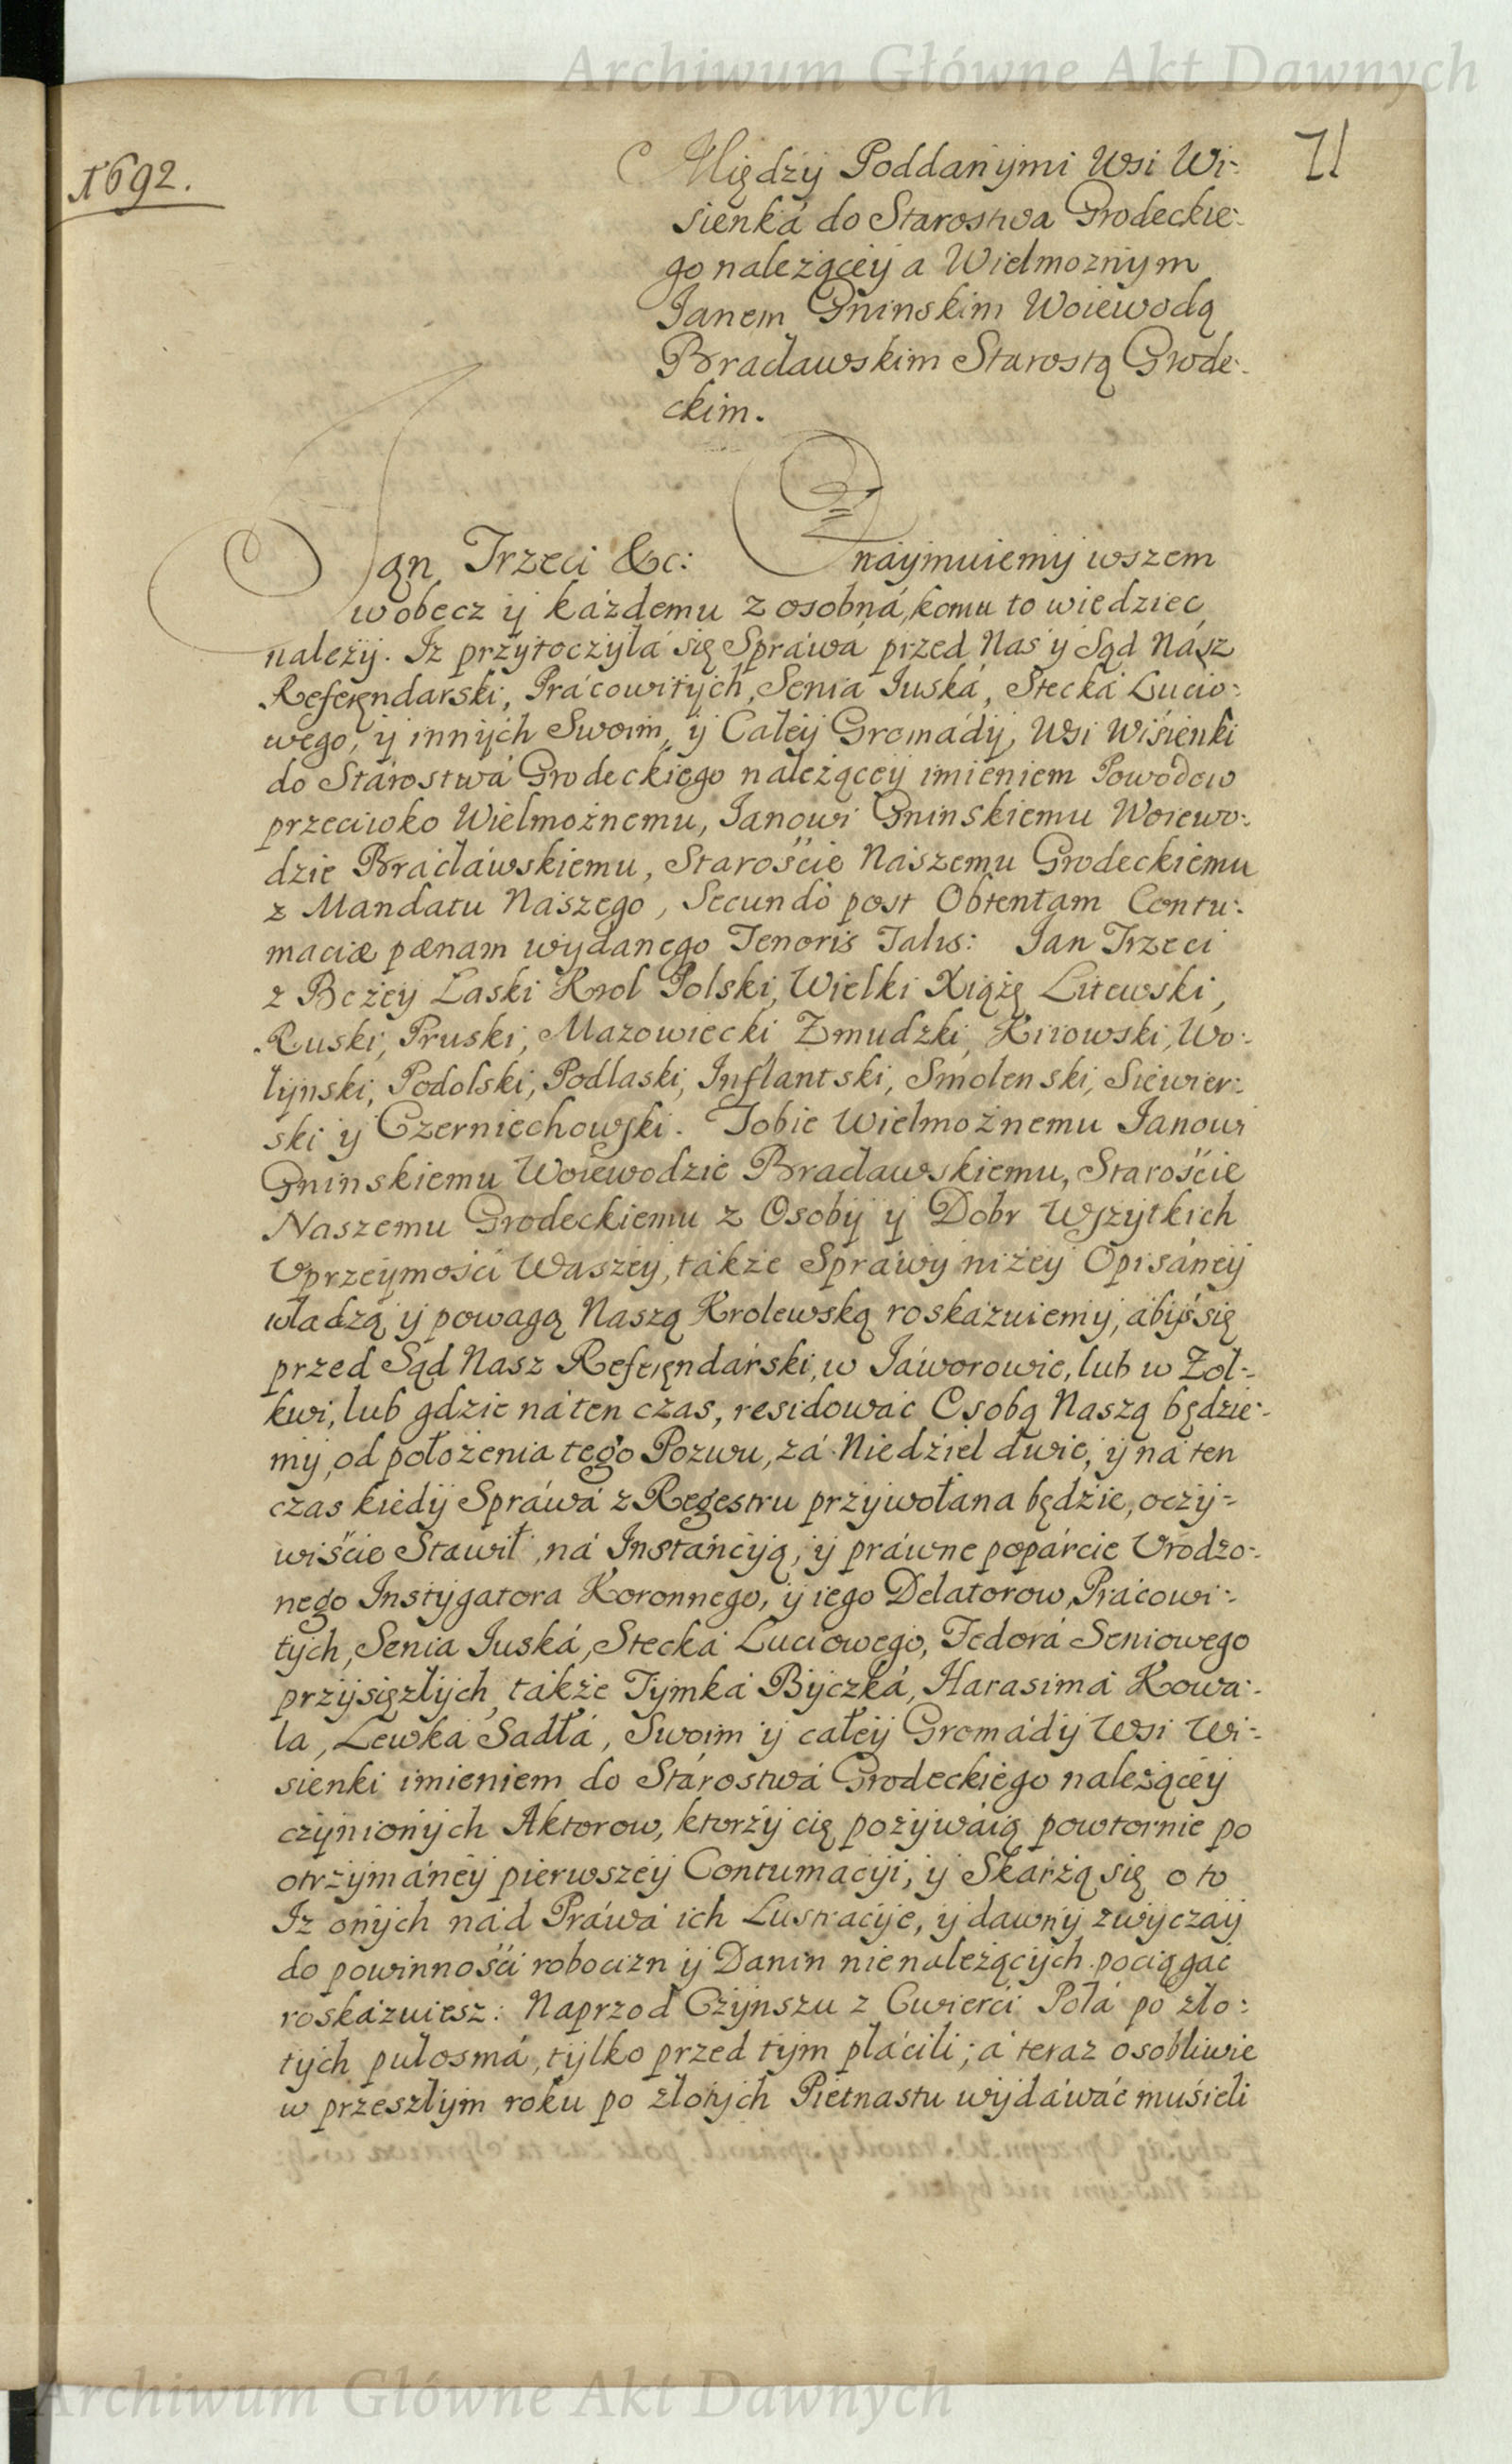 Archiwum Główne Akt Dawnych
1692.
71
Między Poddanymi Wsi Wi-
sienká do Starostwa Grodeckie-
go należącey a Wielmoznym
Janem Gninskim Woiewodą
Bracławskim Starostą Grode-
ckim.
Jan Trzeci &c: Znaymuiemy wszem
wobecz y każdemu z osobná, komu to wiedziec
należy. Iz przytoczyła się Spráwa przed Nas y Sąd Nász
Referęndarski, Prácowitych, Senia Juská, Stecká Lucio-
wego, y innych Swoim, y Całey Gromády, Wsi Wiśienki
do Stárostwá Grodeckiego należącey imieniem Powodow
przeciwko Wielmożnemu, Janowi Gninskiemu Woiewo-
dzie Bracłáwskiemu, Starośćie Nászemu Grodeckiemu
z Mandatu Naszego, Secundo post Obtentam Contu-
maciæ pœnam wydanego Tenoris Talis: Jan Trzeci
z Bożey Łaski Krol Polski, Wielki Xiążę Litewski,
Ruski, Pruski, Mazowiecki Zmudzki, Kiiowski, Wo-
łynski, Podolski, Podlaski, Inflantski, Smolenski, Siewier-
ski y Czerniechowski. Tobie Wielmożnemu Janowi
Gninskiemu Woiewodzie Bracławskiemu, Starośćie
Naszemu Grodeckiemu z Osoby y Dobr Wszytkich
Uprzeymości Waszey, tákże Spráwy niżey Opisáney
władzą y powagą Naszą Krolewską roskázuiemy, ábyś się
przed Sąd Nasz Referęndárski, w Jáworowie, lub w Żoł-
kwi, lub gdzie ná ten czas, residowáć Osobą Naszą będzie-
my, od położenia tego Pozwu, zá Niedziel dwie, y ná ten
czas kiedy Spráwá z Regestru przywołana będzie, oczy-
wiśćie Stawił, ná Instáncyą, y práwne popárcie Urodzo-
nego Instygatora Koronnego, y iego Delatorow, Prácowi-
tych, Senia Juská, Stecká Luciowego, Fedorá Seniowego
przysięzłych, tákże Tymká Byczká, Harasimá Kowa-
la, Lewká Sadłá, Swoim y całey Gromády Wsi Wi-
sienki imieniem do Stárostwá Grodeckiego należącey
czynionych Aktorow, ktorzy cię pozywáią powtornie po
otrzymáney pierwszey Contumacyi, y Skarżą się o to
Iz onych nád Práwá ich Lustracye, y dawny zwyczay
do powinnośći robocizn y Danin nienależących pociągać
roskázuiesz: Naprzod Czynszu z Cwierci Polá po zło-
tych pułosmá, tylko przed tym płácili; á teraz osobliwie
w przeszłym roku po złotych Pietnastu wydáwáć muśieli
Archiwum Główne Akt Dawnych